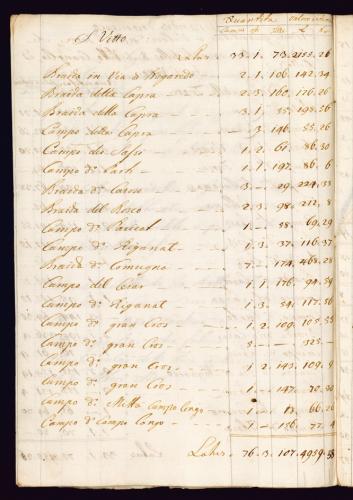 Quantità Valore
S. Vitto
Latus 33. 1. 73. 2155. 26
Braida in Via di Rogaredo 2. 1. 106. 142. 34
Braida della Capra 2. 3. 160. 176. 26
Braida della Capra 3. 1. 35. 198. 26
Campo della Capra 3. 146. 55. 26
Campo dei Sassi 1. 2. 61. 86. 30
Campo d.º 1. 1. 197. 86. 6
Braida d.º 3. - 29. 224. 33
Braida del Bosco 2. 3. 98. 212. 8
Campo d.º 1. - 38. 69. 29
Campo d.º Riganat 1. 3. 37. 116. 37
Braida d.º Comugno 7. - 174. 468. 28
Campo del 1. 1. 176. 94. 38
Campo d.º Riganat 1. 3. 54. 117. 36
Campo d.º gran Cros 1. 2. 109. 105. 33
Campo d.º gran Cros 5. - - 325. -
Campo d.º gran Cros 1. 2. 143. 109. 9
Campo d.º gran Cros 1. - 147. 70. 30
Campo d.º Campo Longo 1. - 66. 26
Campo d.º campo Longo 1. - 156. 77. 4
Latus 76. 3. 107. 4959. 38